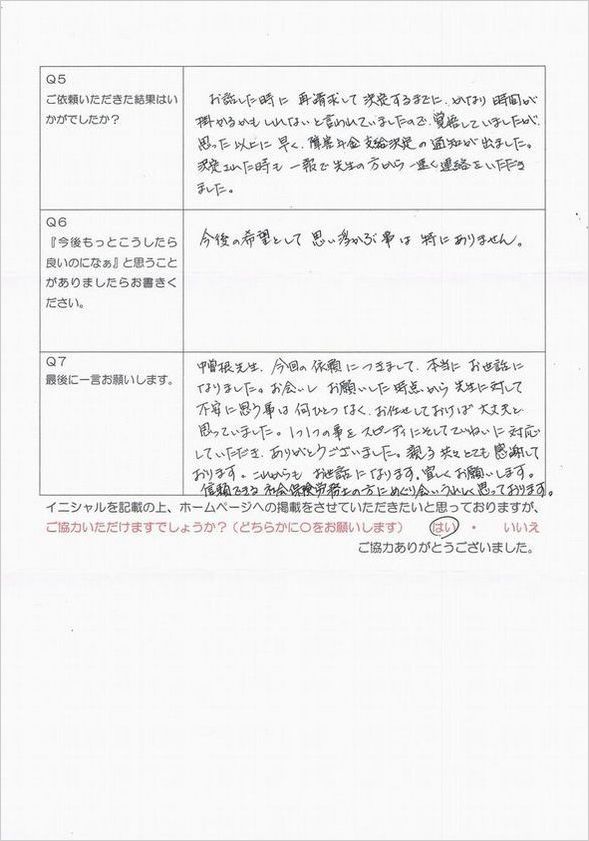 Q5
ご依頼いただきた結果はい
かがでしたか？
お話した時に 再請求して 決定するまでに、かなり 時間が
掛かるかもしれないと言われていましたので、覚悟していましたが、
思った以上に 早く、障害年金 支給決定の 通知が 出ました。
決定された時も 一報で 先生の方から 一速く連絡をいただき
ました。
Q6
『今後もっとこうしたら
良いのになぁ』と思うこと
がありましたらお書きく
ださい。
今後の希望として 思い浮かぶ 事は 特にありません。
Q7
最後に一言お願いします。
中曽根先生、今回の 依頼につきまして、本当に お世話に
なりました。お会いし お願いした時点から 先生に対して
不安に思う事は 何ひとつなく、お任せしておけば 大丈夫と
思っていました。1つ1つの事を スピーディにそしてていねいに 対応
していただき、ありがとうございました。親子共々とても 感謝して
おります。これからも お世話になります。宜しくお願いします。
信頼できる 社会保険労務士の方にめぐり会いうれしく思っております。
イニシャルを記載の上、ホームページへの掲載をさせていただきたいと思っておりますが、
ご協力いただけますでしょうか？（どちらかに○をお願いします） はい ・ いいえ
ご協力ありがとうございました。